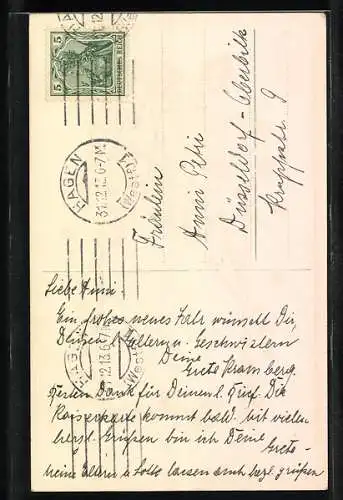 5 5
DEUTSCHES REICH
HAGEN
31.12.13.6-7N.
(Westf.)
Fräulein
Anni Petri
Düsseldorf-Oberbilk
Kruppstr. 9
HAGEN
12.13.6-7N
(Westf.)
Liebe Anni.
Ein frohes neues Jahr wünscht Dir,
Deinen l. Eltern u. Geschwistern
Deine
Grete Kramberg.
Besten Dank für Deinen l. Brief. Die
Kaiserkarte kommt bald. Mit vielen
herzl. Grüßen bin ich Deine
Grete
Meine Eltern u. lassen auch herzl. grüßen